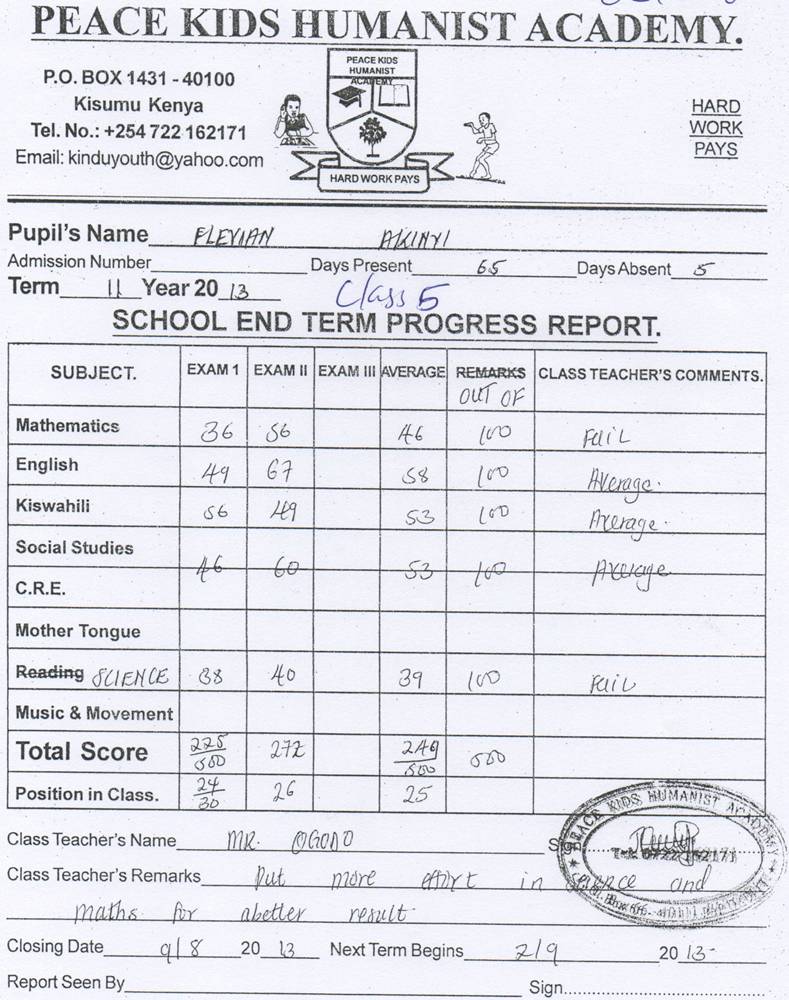 PEACE KIDS HUMANIST ACADEMY.
P.O. BOX 1431 - 40100
Kisumu Kenya
Tel. No.: +254 722 162171
Email: kinduyouth@yahoo.com
PEACE KIDS
HUMANIST
ACADEMY
HARD WORK PAYS
HARD
WORK
PAYS
Pupil's Name FLEVIAN AKINYI
Admission Number Days Present 65 Days Absent 5
Term 11 Year 20 13 Class 5
SCHOOL END TERM PROGRESS REPORT.
SUBJECT. EXAM 1 EXAM II EXAM III AVERAGE REMARKS OUT OF CLASS TEACHER'S COMMENTS.
Mathematics 36 56 46 100 Fail
English 49 67 58 100 Average.
Kiswahili 56 49 53 100 Average.
Social Studies
46 60 53 100 Average
C.R.E.
Mother Tongue
Reading SCIENCE 38 40 39 100 Fail
Music & Movement
Total Score 225/500 272 249/500 500
Position in Class. 24/30 26 25
Class Teacher's Name MR. OGODO Sign
Class Teacher's Remarks Put more effort in science and
maths for abetter result.
PEACE KIDS HUMANIST ACADEMY
Tel: 0722 162171
Closing Date 9/8 20 13 Next Term Begins 2/9 20 13
Report Seen By Sign